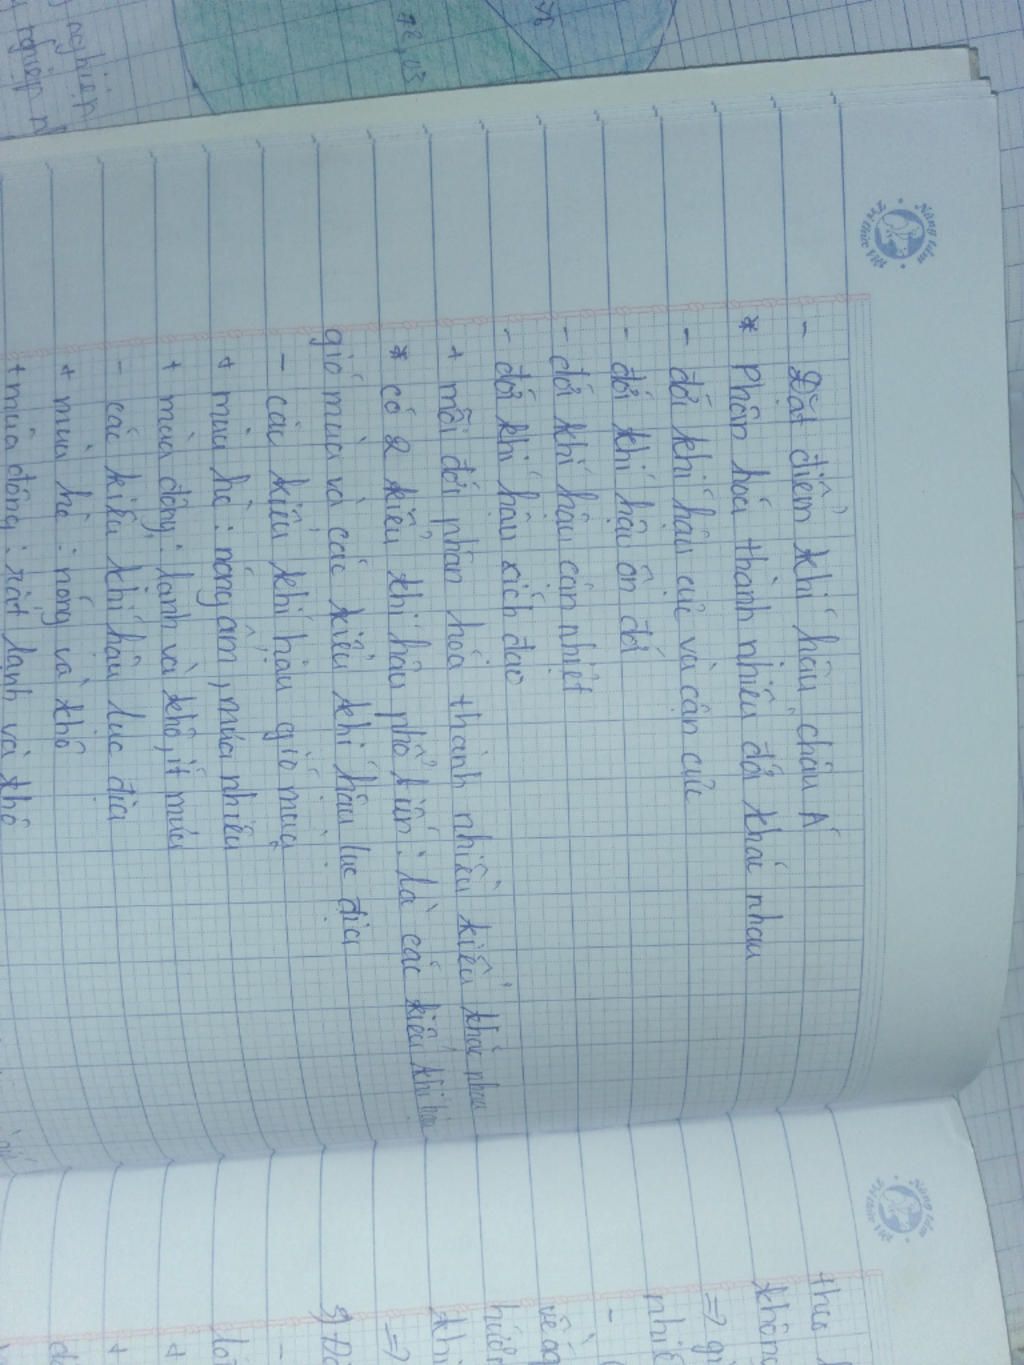 - Đặt điểm khí hậu châu Á
* Phân hoá thành nhiều đới khác nhau
- đới khí hậu cực và cận cực
- đới khí hậu ôn đới
- đới khí hậu cận nhiệt
- đới khí hậu xích đạo
+ mỗi đới phân hóa thành nhiều kiểu khác nhau
* có 2 kiểu khí hậu phổ biến: là các kiểu khí hậu
gió mùa và các kiểu khí hậu lục địa
- các kiểu khí hậu gió mùa
+ mùa hè: nóng ẩm, mưa nhiều
+ mùa đông: lạnh và khô, ít mưa
- các kiểu khí hậu lục địa
+ mùa hè: nóng và khô
+ mùa đông: rất lạnh và khô
Nâng tầm
Tri thức Việt
72,03
nghiệp
Nâng tầm
Tri thức Việt
không
=>
-
=>
-
+
+